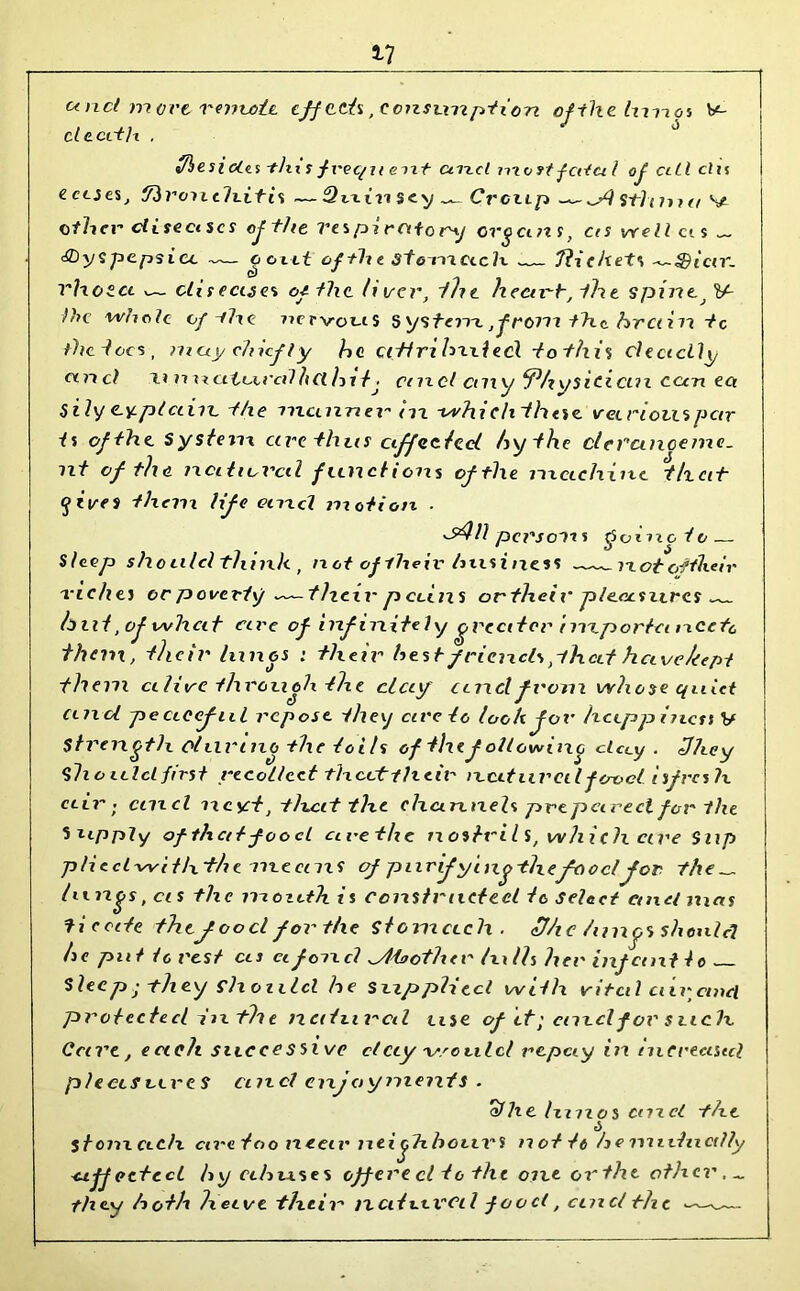 17
and more remote effects, consumption of the lungs &
death .
Besides this frequent and most fatal of all dis
eases, Bronchitis — Quinsey — Croup — Asthma &
other diseases of the respiratory organs, as well as —
Dyspepsia — gout of the stomach — Rickets — Diar-
rhoea — diseases of the liver, the heart, the spine, &
the whole of the nervous system, from the brain to
the toes, may chiefly be attributed to this deadly
and unnatural habit; and any Physician can ea
sily explain the manner in which these various par
ts of the system are thus affected by the derangeme-
nt of the natural functions of the machine that
gives them life and motion .
All persons going to —
sleep should think, not of their business — not of their
riches or poverty — their pains or their pleasures —
but, of what are of infinitely greater importance to
them, their lungs : their best friends, that have kept
them alive through the day and from whose quiet
and peaceful repose they are to look for happiness &
strength during the toils of the following day . They
should first recollect that their natural food is fresh
air; and next, that the channels prepared for the
supply of that food are the nostrils, which are sup
plied with the means of purifying the food for the —
lungs, as the mouth is constructed to select and mas
ticate the food for the stomach . The lungs should
be put to rest as a fond Mother lulls her infant to —
sleep; they should be supplied with vital air, and
protected in the natural use of it; and for such
care, each successive day would repay in increased
pleasures and enjoyments .
The lungs and the
stomach are too near neighbours not to be mutually
affected by abuses offered to the one or the other, —
they both have their natural food, and the —